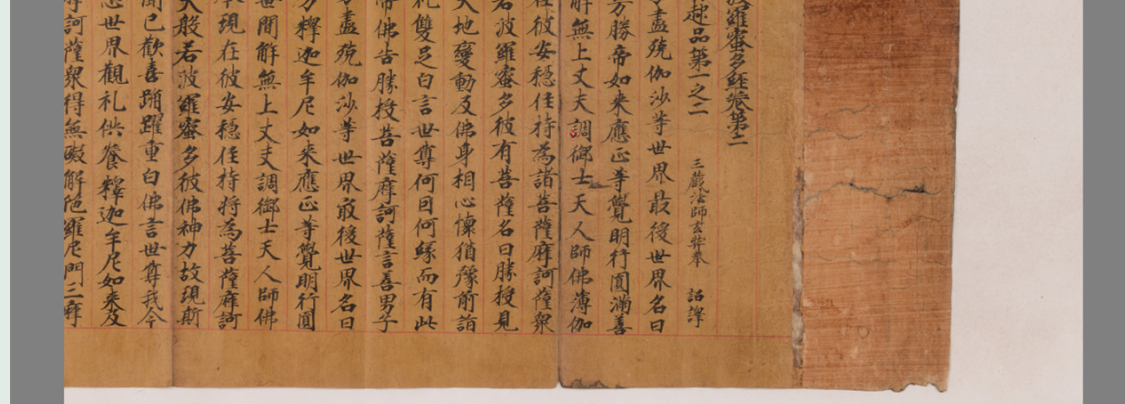 波羅蜜多經卷第二
起品第一之二 三藏法師玄奘奉 詔譯
盡殑伽沙等世界最後世界名曰
号勝帝如来應正等覺明行圓滿善
解無上丈夫調御士天人師佛薄伽
在彼安穩住持為諸菩薩摩訶薩衆
若波羅蜜多彼有菩薩名曰勝授見
大地變動及佛身相心懷猶豫前詣
礼雙足白言世尊何因何緣而有此
帝佛告勝授菩薩摩訶薩言善男子
盡殑伽沙等世界最後世界名曰
号釋迦牟尼如来應正等覺明行圓
世間解無上丈夫調御士天人師佛
現在彼安穩住持將為菩薩摩訶
大般若波羅蜜多彼佛神力故現斯
聞已歡喜踊躍重白佛言世尊我今
忍世界觀礼供養釋迦牟尼如来及
摩訶薩衆得無礙解陀羅尼門三摩